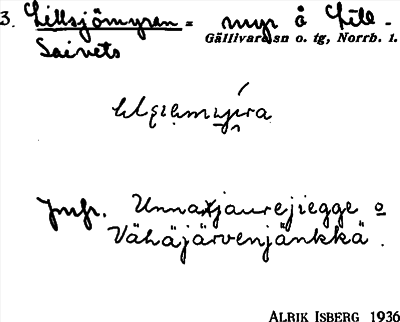 3. Lillsjömyran = myr å Lill-
Gällivare sn o. tg, Norrb. l.
Saivets
Jmfr. Unnatjaurejiegge o
Vähäjärvenjänkkä.
ALRIK ISBERG 1936